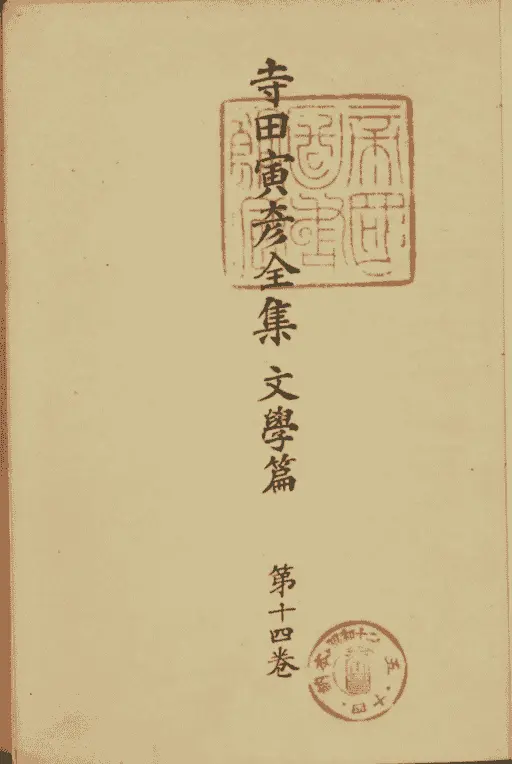 寺田寅彦全集 文學篇
第十四卷
五・十四・